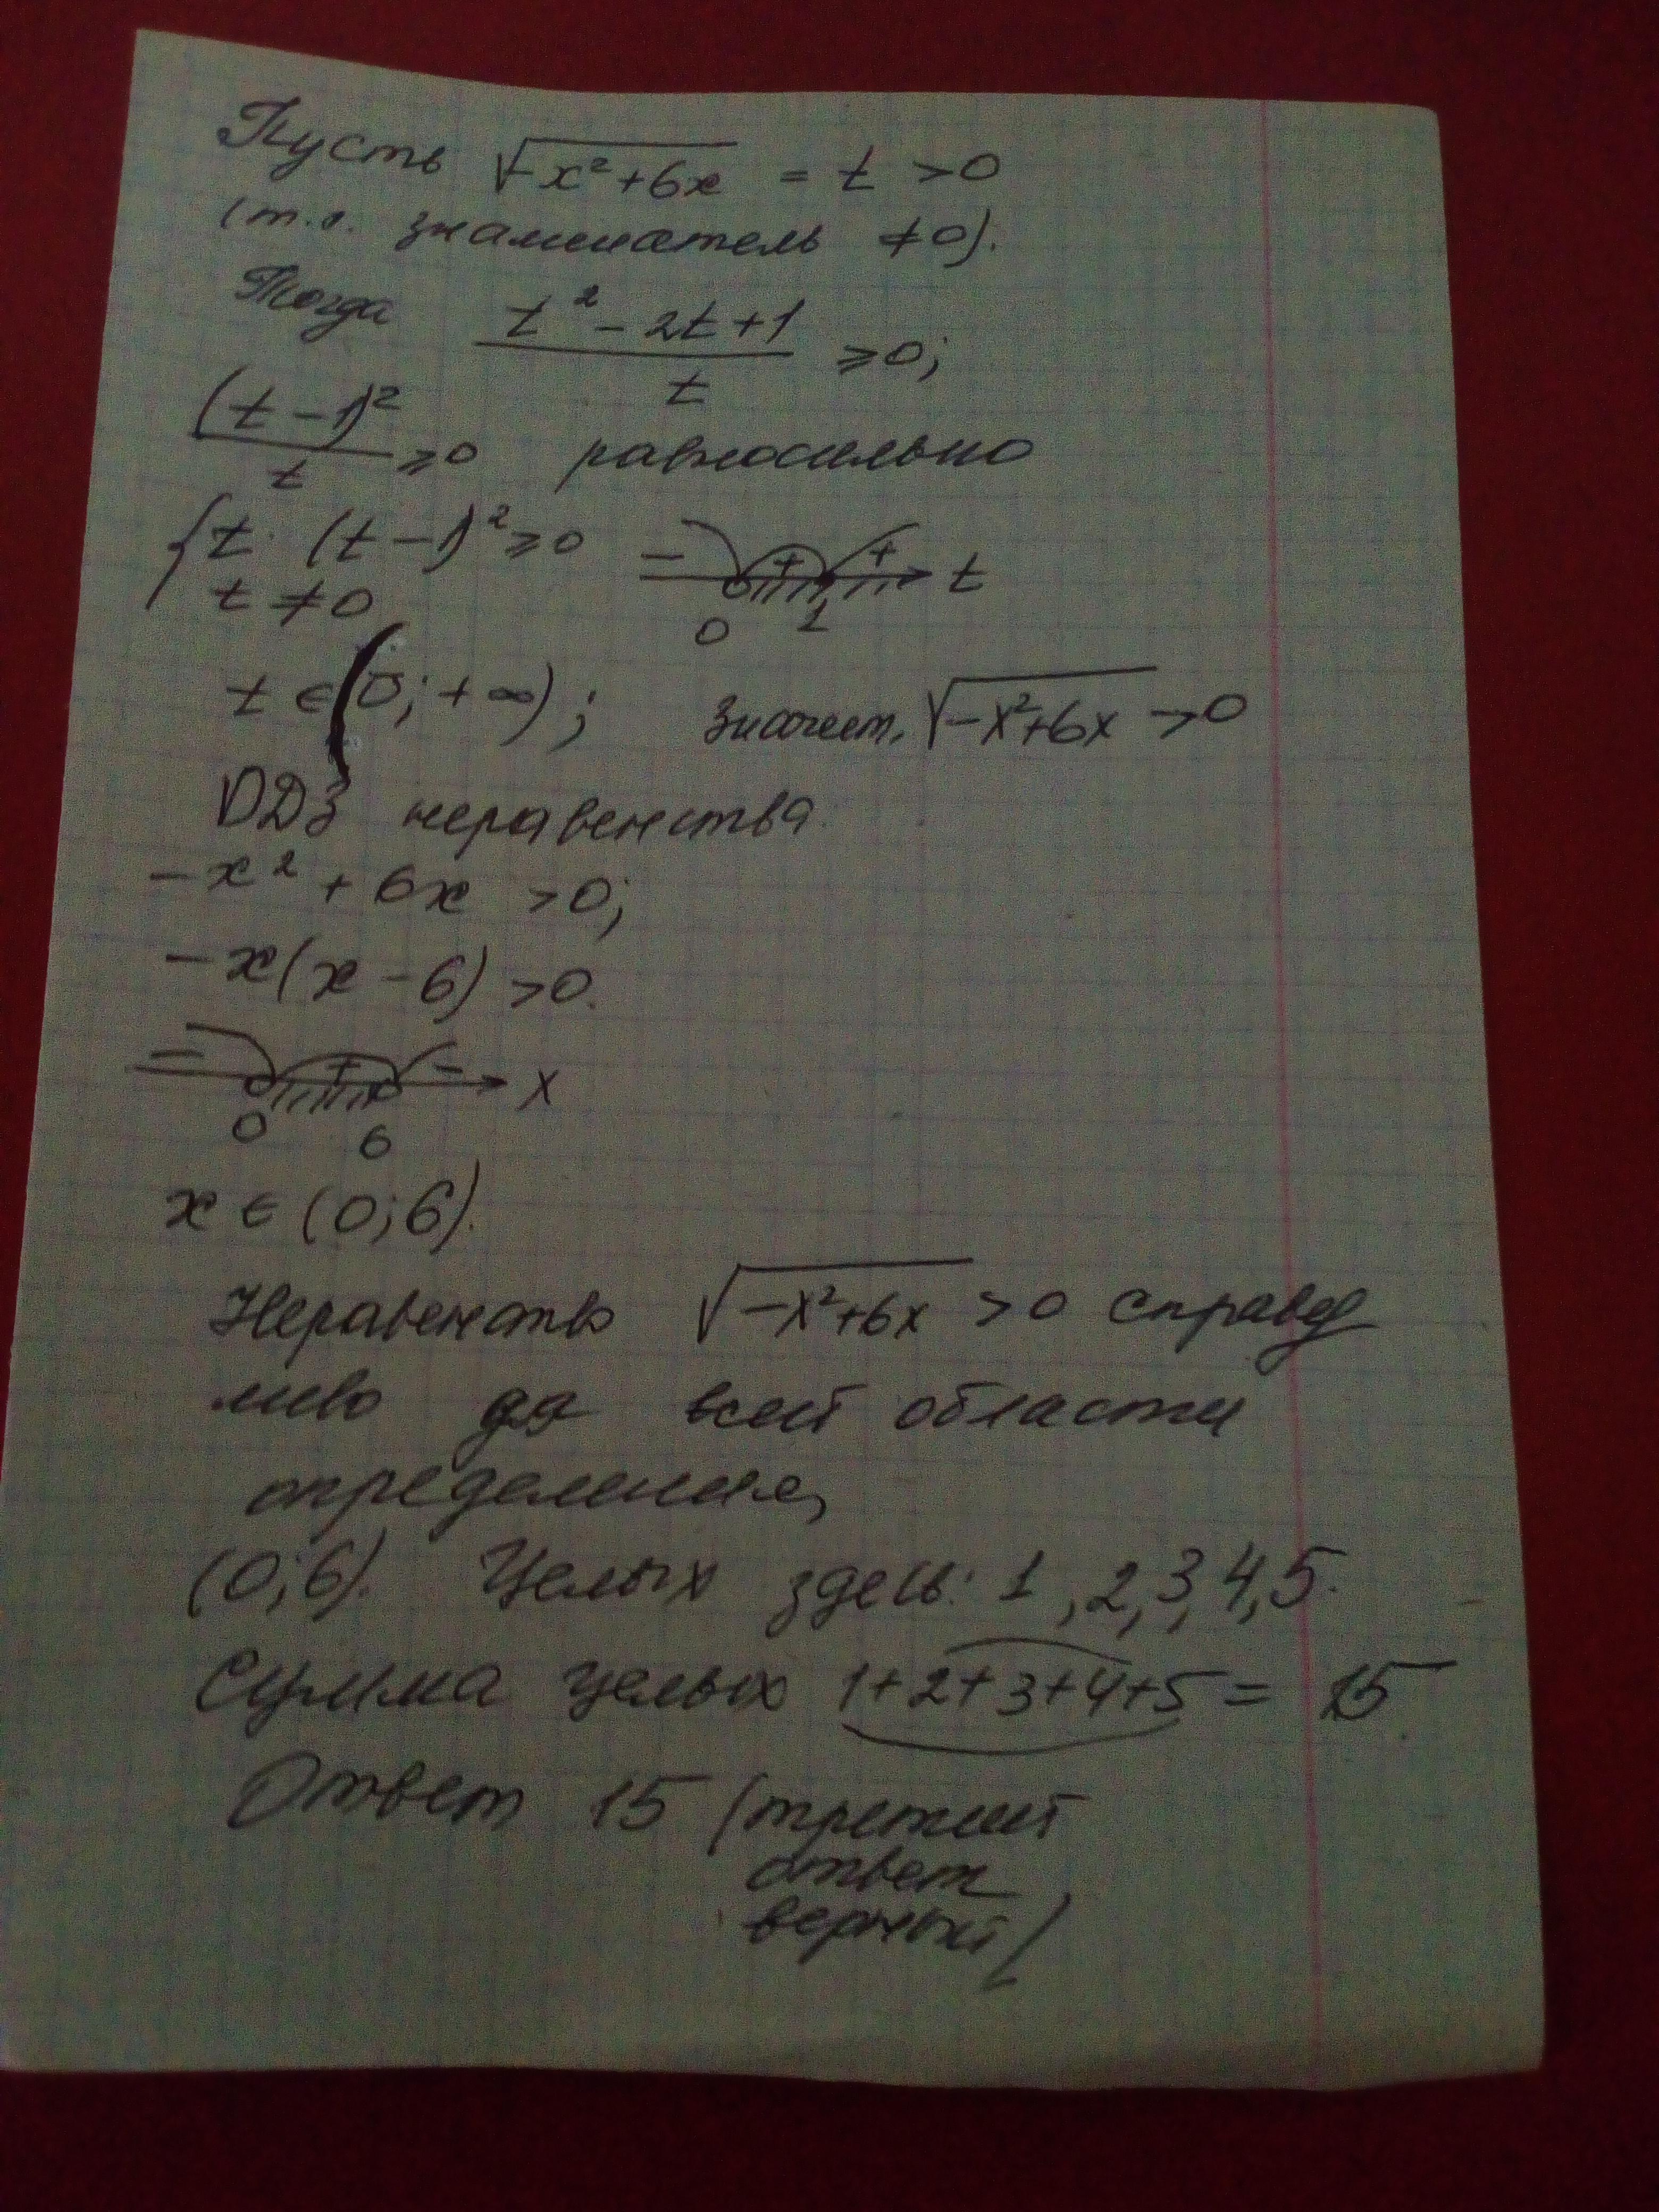 Пусть √-x²+6x = t >0
(т.е. знаменатель ≠0).
Тогда (t²-2t+1)/t ≥0;
(t-1)²/t ≥0 равносильно
{t·(t-1)²≥0
t≠0
- + + t
0 1
t∈(0;+∞); Значит, √-x²+6x >0
ОДЗ неравенства:
-x²+6x >0;
-x(x-6)>0.
- + - x
0 6
x∈(0;6).
Неравенство √-x²+6x >0 справед
ливо для всей области
определения,
(0;6). Целых здесь: 1,2,3,4,5.
Сумма целых 1+2+3+4+5= 15
Ответ 15 (третий
ответ
верный)